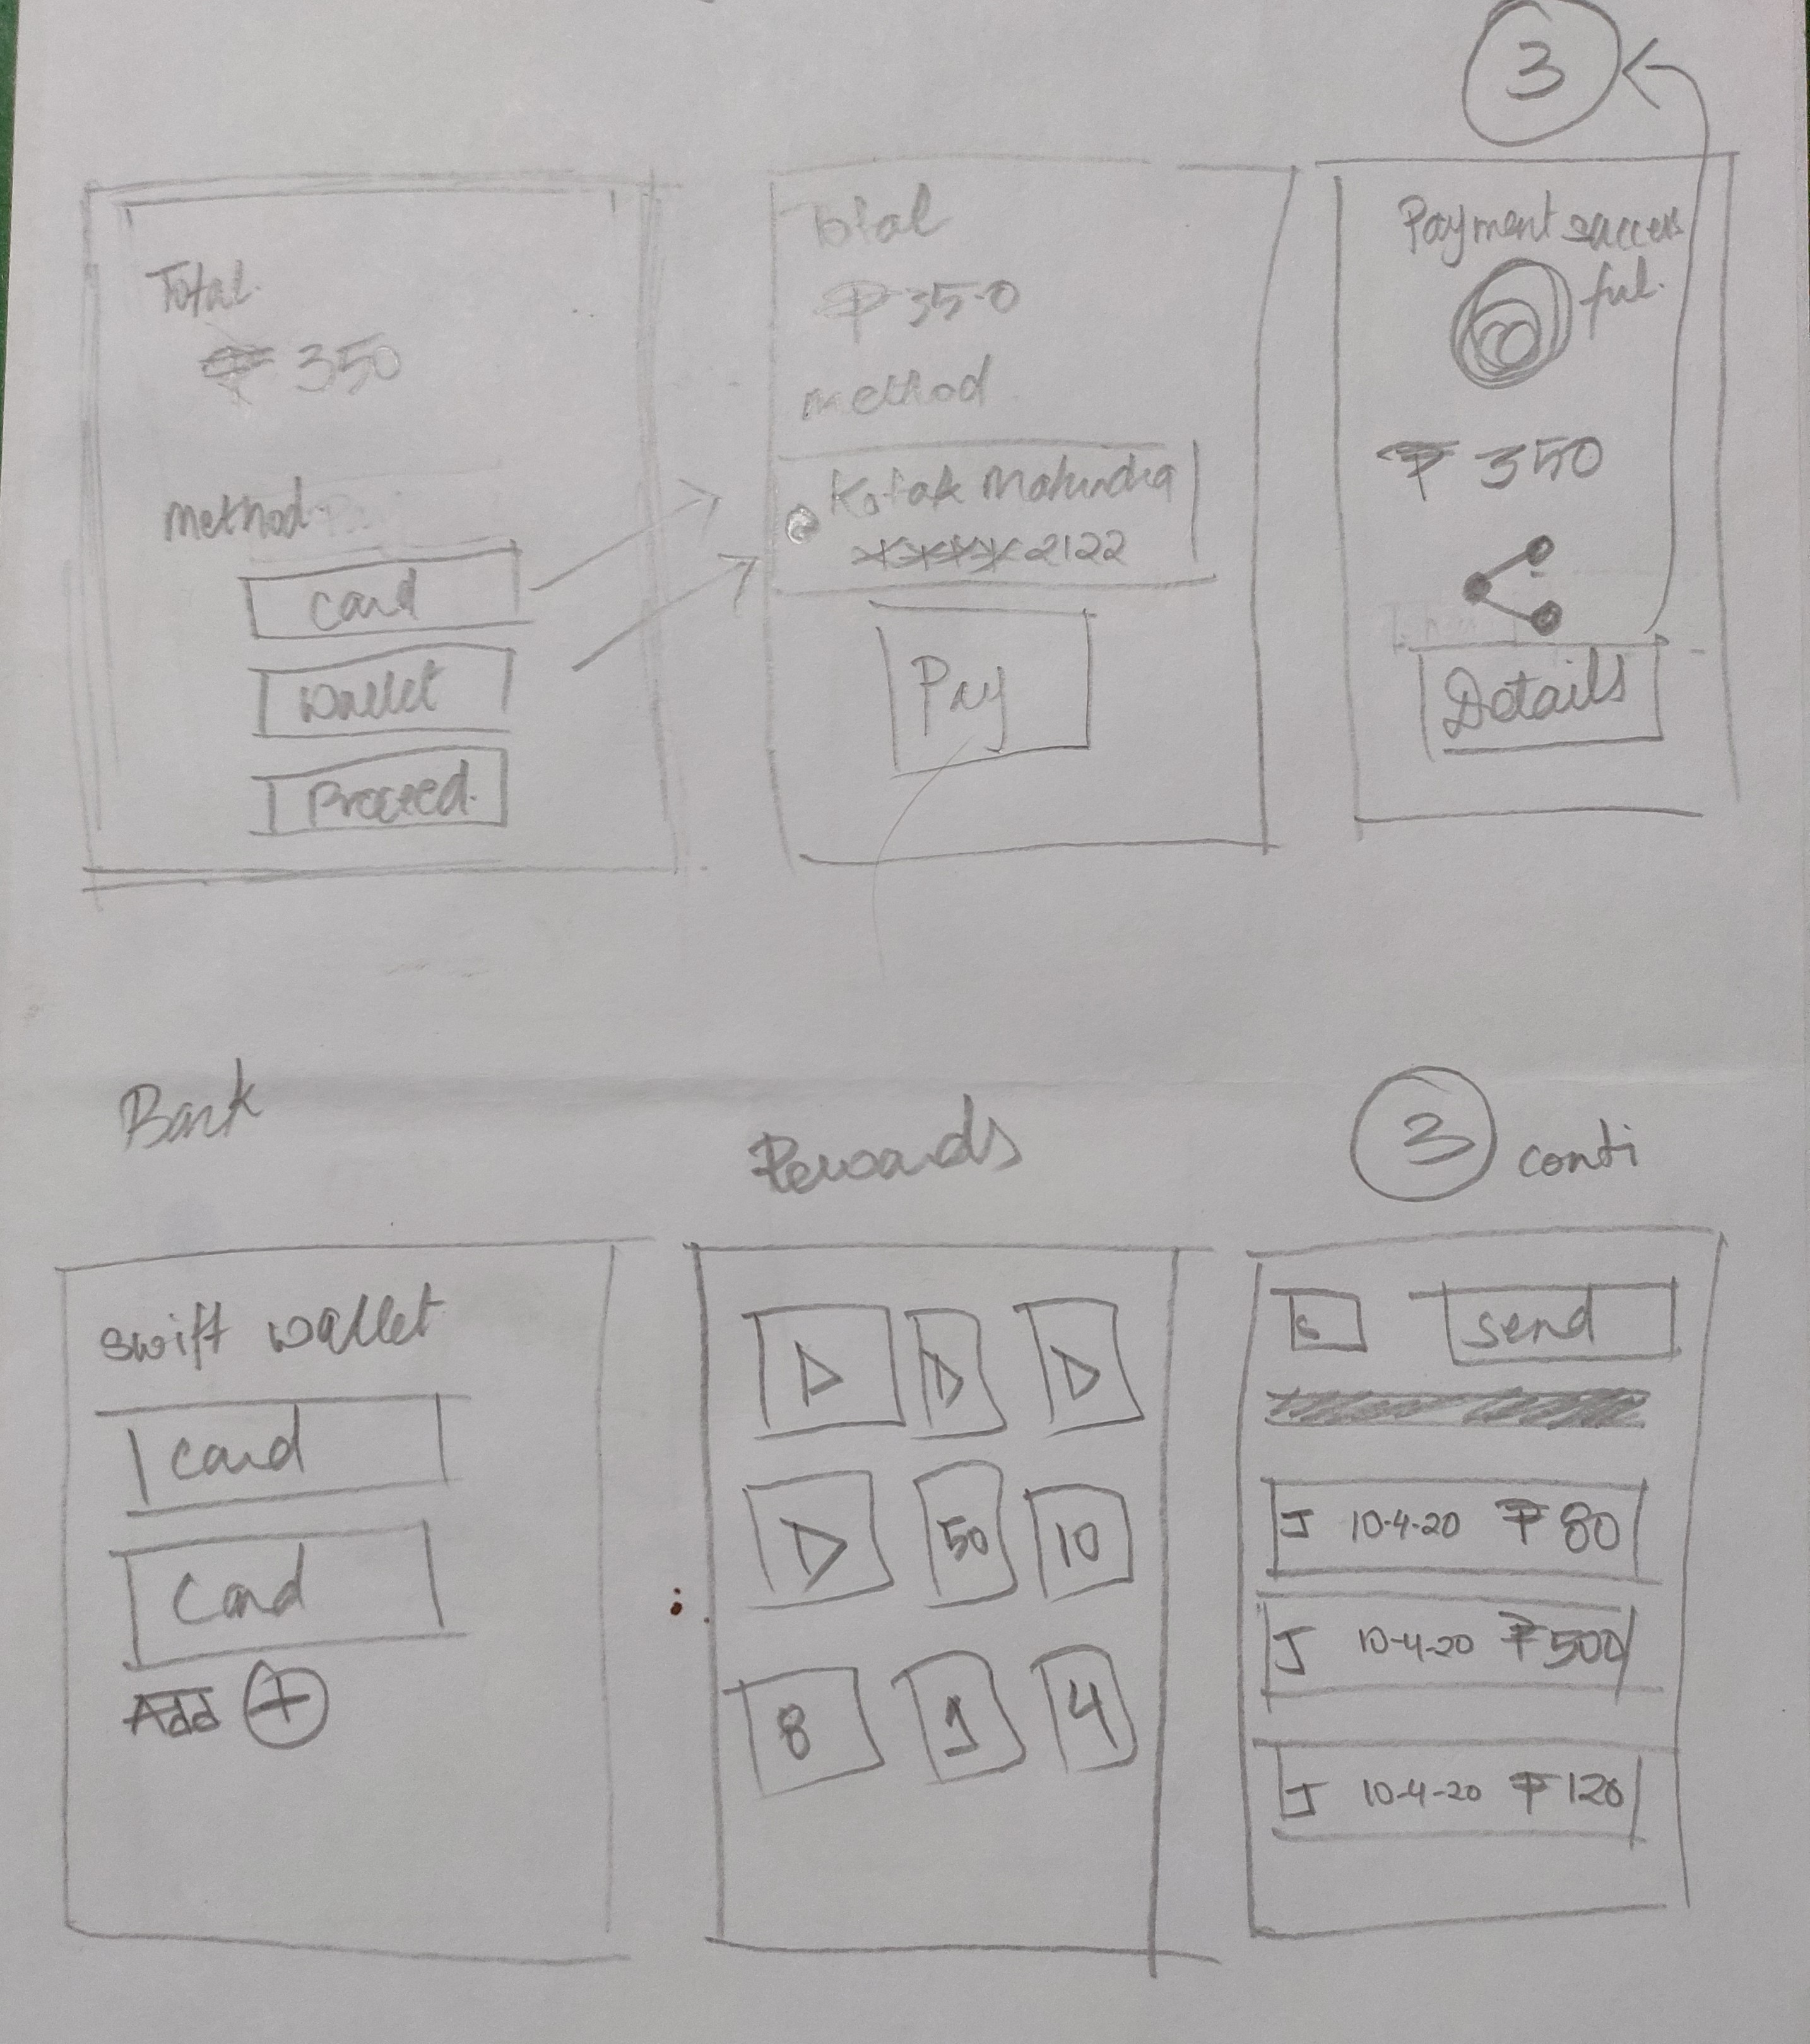 3
Total
₹ 350
Method
Card
Wallet
Proceed.
Total
₹ 350
Method
Kotak Mahindra
xxxx 2122
Pay
Payment success
ful.
₹ 350
Details
Bank
Swift wallet
Card
Card
Add +
Rewards
50 10
8 1 4
3 conti
Send
J 10-4-20 ₹ 80
J 10-4-20 ₹ 500
J 10-4-20 ₹ 120